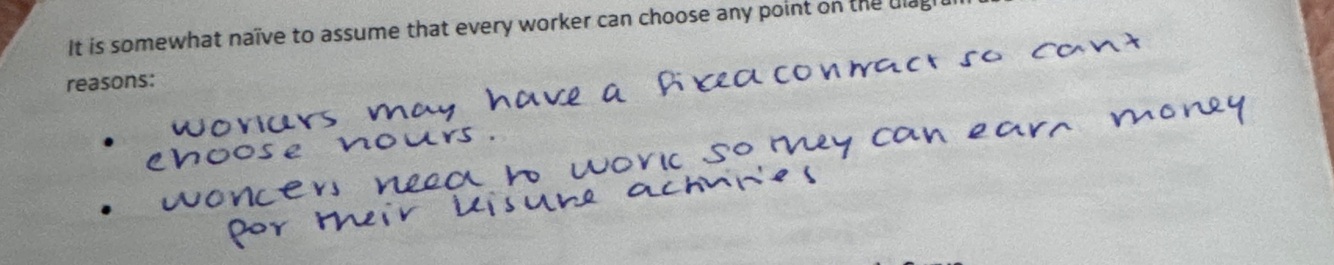 It is somewhat naïve to assume that every worker can choose any point on the
reasons:
• workers may have a fixed contract so cant
choose hours.
• workers need to work so they can earn money
for their leisure activities